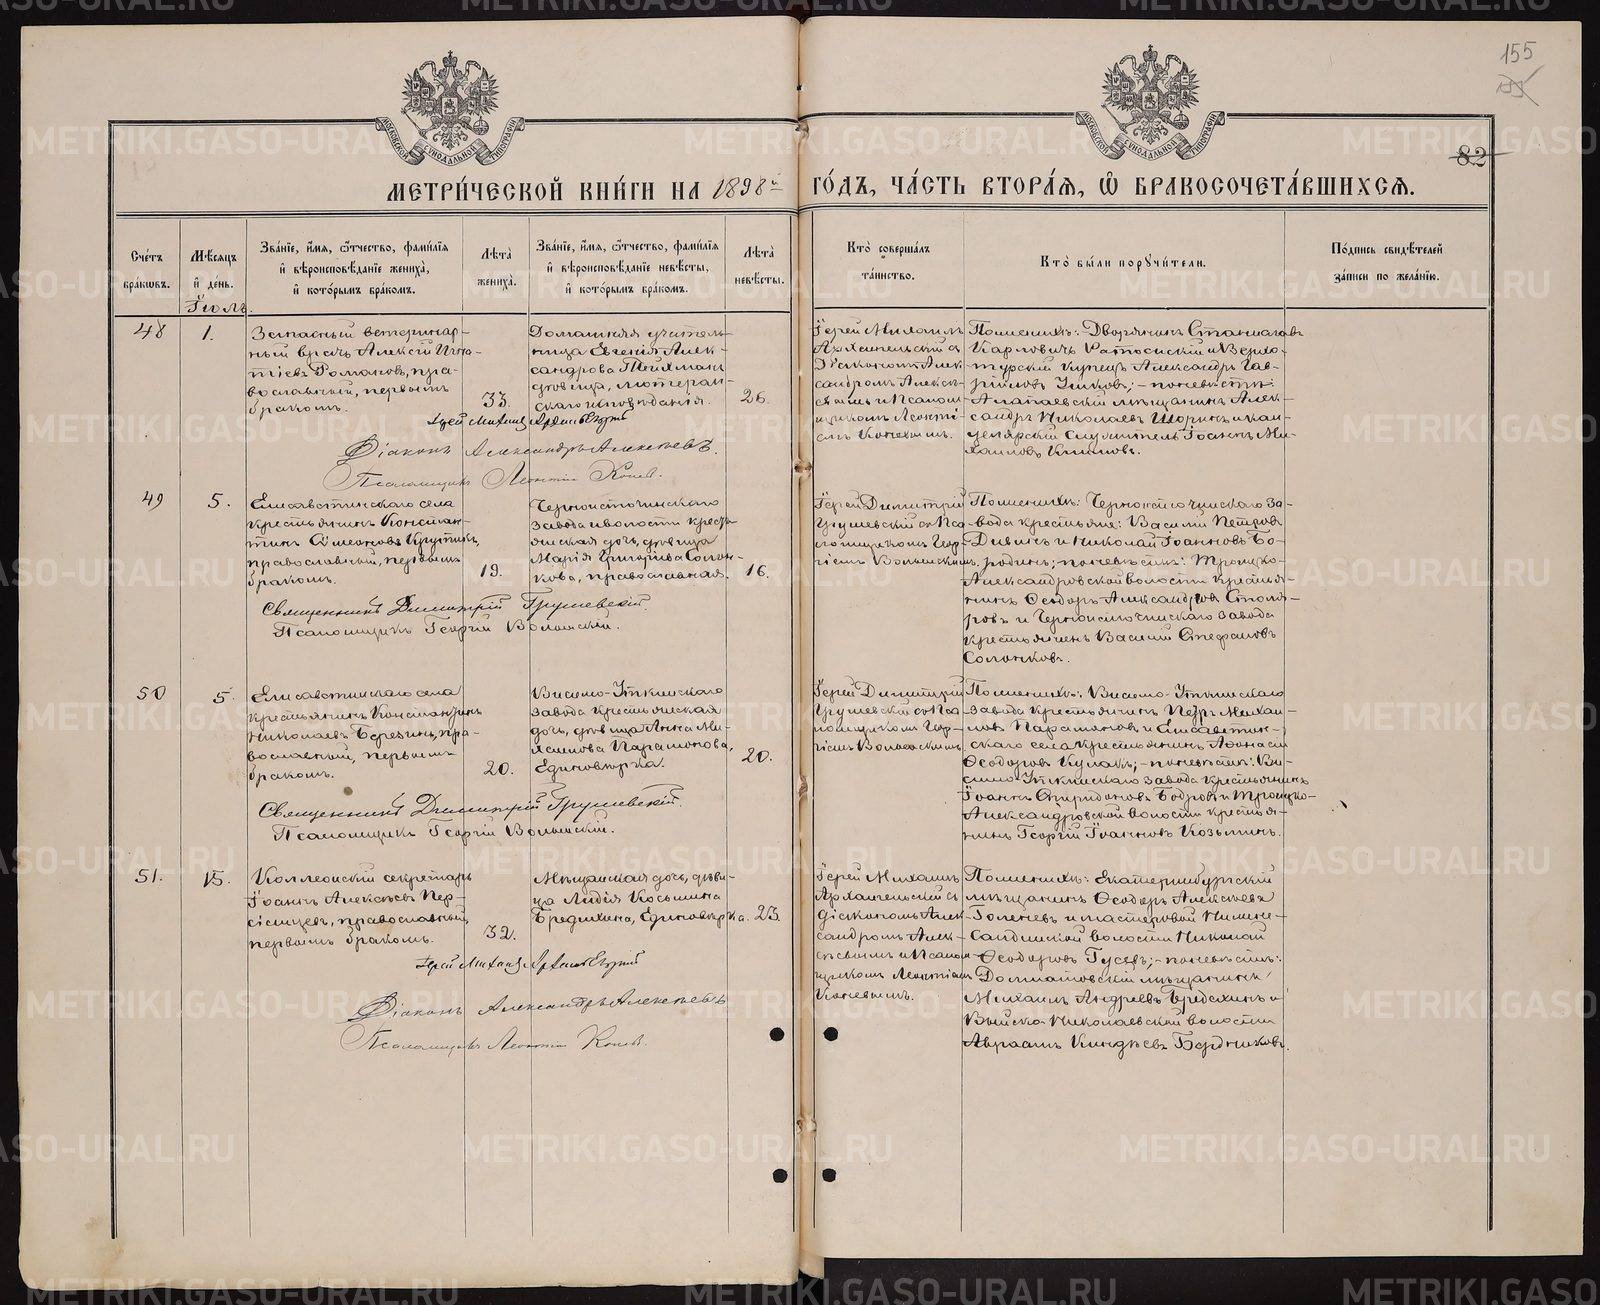 155
82
МОСКОВСКОЙ СѴНОДАЛЬНОЙ ТИПОГРАФІИ
МОСКОВСКОЙ СѴНОДАЛЬНОЙ ТИПОГРАФІИ
МЕТРИ́ЧЕСКОЙ КНИ́ГИ НА 1898й ГО́ДЪ, ЧА́СТЬ ВТОРА́Я, Ѽ БРАКОСОЧЕТА́ВШИХСЯ.
Сче́тъ бра́кѡвъ.
Мѣ́сяцъ и де́нь.
Зва́нїе, и҆́мя, ѻ҆́тчество, фами́лїя и҆ вѣроисповѣ́данїе жениха̀, и҆ кото́рымъ бра́комъ.
Лѣ́та жениха̀.
Зва́нїе, и҆́мя, ѻ҆́тчество, фами́лїя и҆ вѣроисповѣ́данїе невѣ́сты, и҆ кото́рымъ бра́комъ.
Лѣ́та невѣ́сты.
Кто̀ соверша́лъ та́инство.
Кто̀ бы́ли порꙋчи́тели.
По́дпись свидѣ́телей за́писи по жела́нїю.
Іюль.
48
1.
Запасный ветеринар-
ный врачъ Алексій Игна-
тіевъ Романовъ, пра-
вославный, первымъ
бракомъ.
33.
Домашняя учитель-
ница Евгенія Алек-
сандрова Тейхманъ
дѣвица, лютеран-
скаго исповѣданія.
26.
Іерей Михаилъ
Архангельскій съ
Діакономъ Алек-
сандромъ Алексѣ-
евымъ и Псалом-
щикомъ Леонті-
емъ Коневымъ.
По женихѣ: Дворянинъ Станиславъ
Карловичъ и Верхо-
турскій купецъ Александръ Гав-
риловъ Ушковъ; – по невѣстѣ:
Алапаевскій мѣщанинъ Алек-
сандръ Николаевъ Шоринъ и кан-
целярскій служитель Іоаннъ Ми-
хаиловъ
Іерей Михаилъ Архангельскій
Діаконъ Александръ Алексѣевъ.
Псаломщикъ Леонтій Коневъ.
49
5.
Елисаветинскаго села
крестьянинъ Констан-
тинъ Сѵмеоновъ Крутикъ,
православный, первымъ
бракомъ.
19.
Черноисточинскаго
завода и волости кресть-
янская дочь, дѣвица
Марія Григоріева Солон-
кова, православная.
16.
Іерей Димитрій
Грушевскій съ Пса-
ломщикомъ Геор-
гіемъ Волынскимъ
По женихѣ: Черноисточинскаго за-
вода крестьяне: Василій Петровъ
Дивинъ и Николай Іоанновъ Бо-
родинъ; по невѣстѣ: Троицко-
Александровской волости крестья-
нинъ Ѳеодоръ Александровъ Столя-
ровъ и Черноисточинскаго завода
крестьянинъ Василій Стефановъ
Солонковъ.
Священникъ Димитрій Грушевскій.
Псаломщикъ Георгій Волынскій.
50
5.
Елисаветинскаго села
крестьянинъ Константинъ
Николаевъ Березинъ, пра-
вославный, первымъ
бракомъ.
20.
Висимо-Уткинскаго
завода крестьянская
дочь, дѣвица Анна Ми-
хаилова Парамонова,
Единовѣрка.
20.
Іерей Димитрій
Грушевскій съ Пса-
ломщикомъ Геор-
гіемъ Волынскимъ
По женихѣ: Висимо-Уткинскаго
завода крестьянинъ Петръ Михаи-
ловъ Парамоновъ и Елисаветин-
скаго села крестьянинъ Аѳанасій
Ѳеодоровъ Кулакъ; – по невѣстѣ: Ви-
симо-Уткинскаго завода крестьянинъ
Іоаннъ Спиридоновъ Бодровъ и Троицко-
Александровской волости крестья-
нинъ Георгій Іоанновъ Козьминъ.
Священникъ Димитрій Грушевскій.
Псаломщикъ Георгій Волынскій.
51.
15.
Коллежскій секретарь
Іоаннъ Алексѣевъ Пер-
сіанцевъ, православный,
первымъ бракомъ.
32.
Мѣщанская дочь, дѣви-
ца Лидія Косьмина
Бредихина, Единовѣрка.
23.
Іерей Михаилъ
Архангельскій съ
діакономъ Алек-
сандромъ Алек-
сѣевымъ и Псалом-
щикомъ Леонтіемъ
Коневымъ.
По женихѣ: Екатеринбургскій
мѣщанинъ Ѳеодоръ Алексѣевъ
Голеневъ и мастеровой Нижне-
Салдинской волости Николай
Ѳеодоровъ Гусевъ; – по невѣстѣ:
Долматовскій мѣщанинъ
Михаилъ Андреевъ Бредихинъ и
Выйско-Николаевской волости
Авраамъ Киндѣевъ Бердниковъ.
Іерей Михаилъ Архангельскій
Діаконъ Александръ Алексѣевъ
Псаломщикъ Леонтій Коневъ.
METRIKI.GASO-URAL.RU